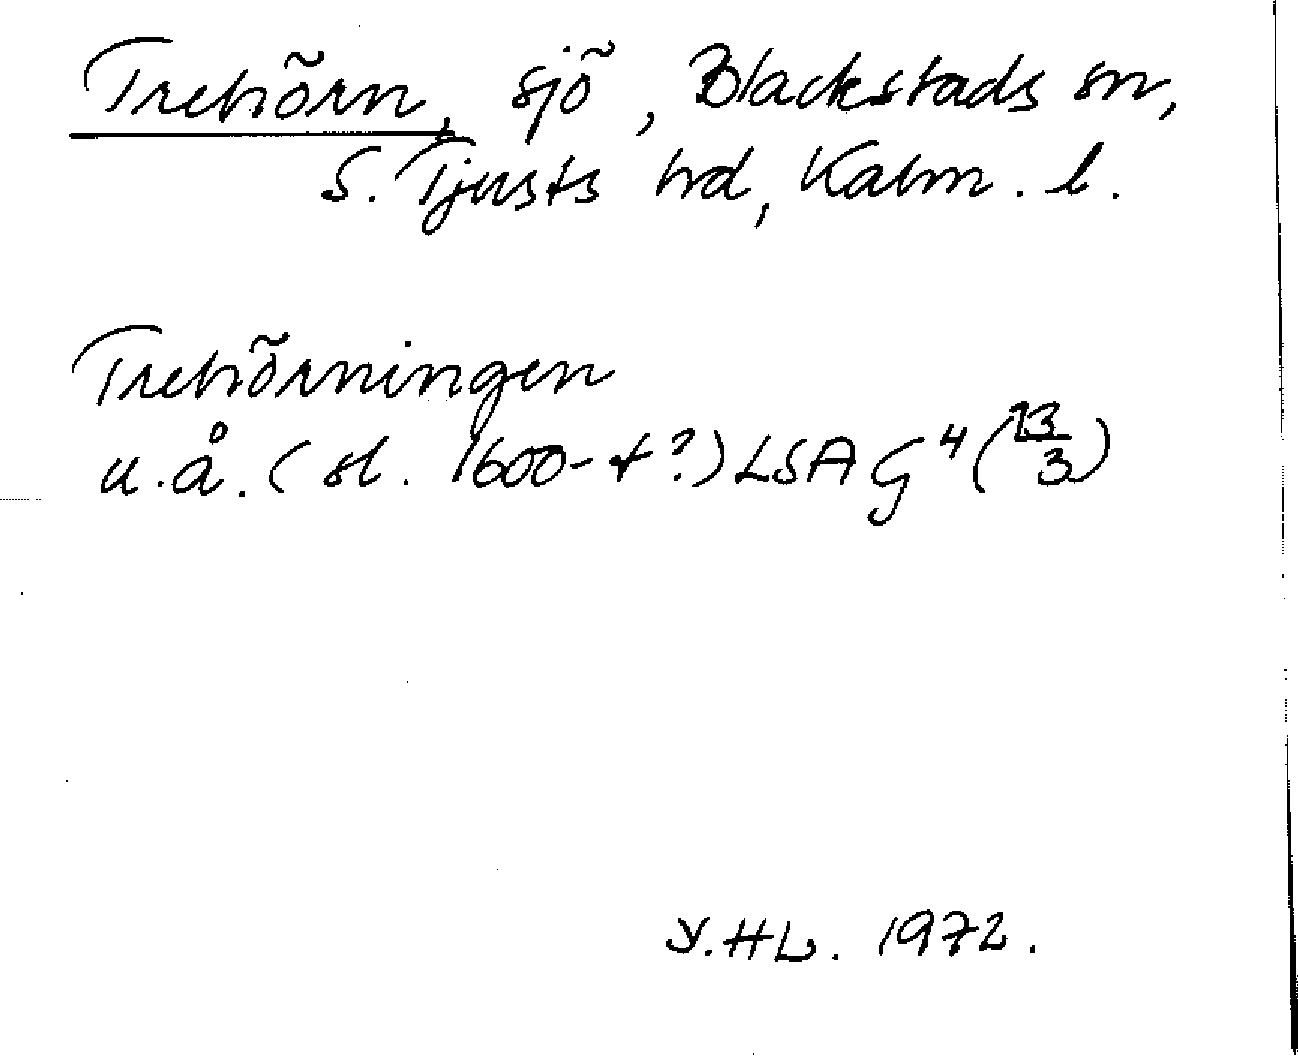 Trehörn, sjö, Blackstads sn,
S. Tjusts hd, Kalm. l.
Trehörningen
u.å. (sl. 1600-t?) LSA G⁴ (13/3)
Y.HL. 1972.